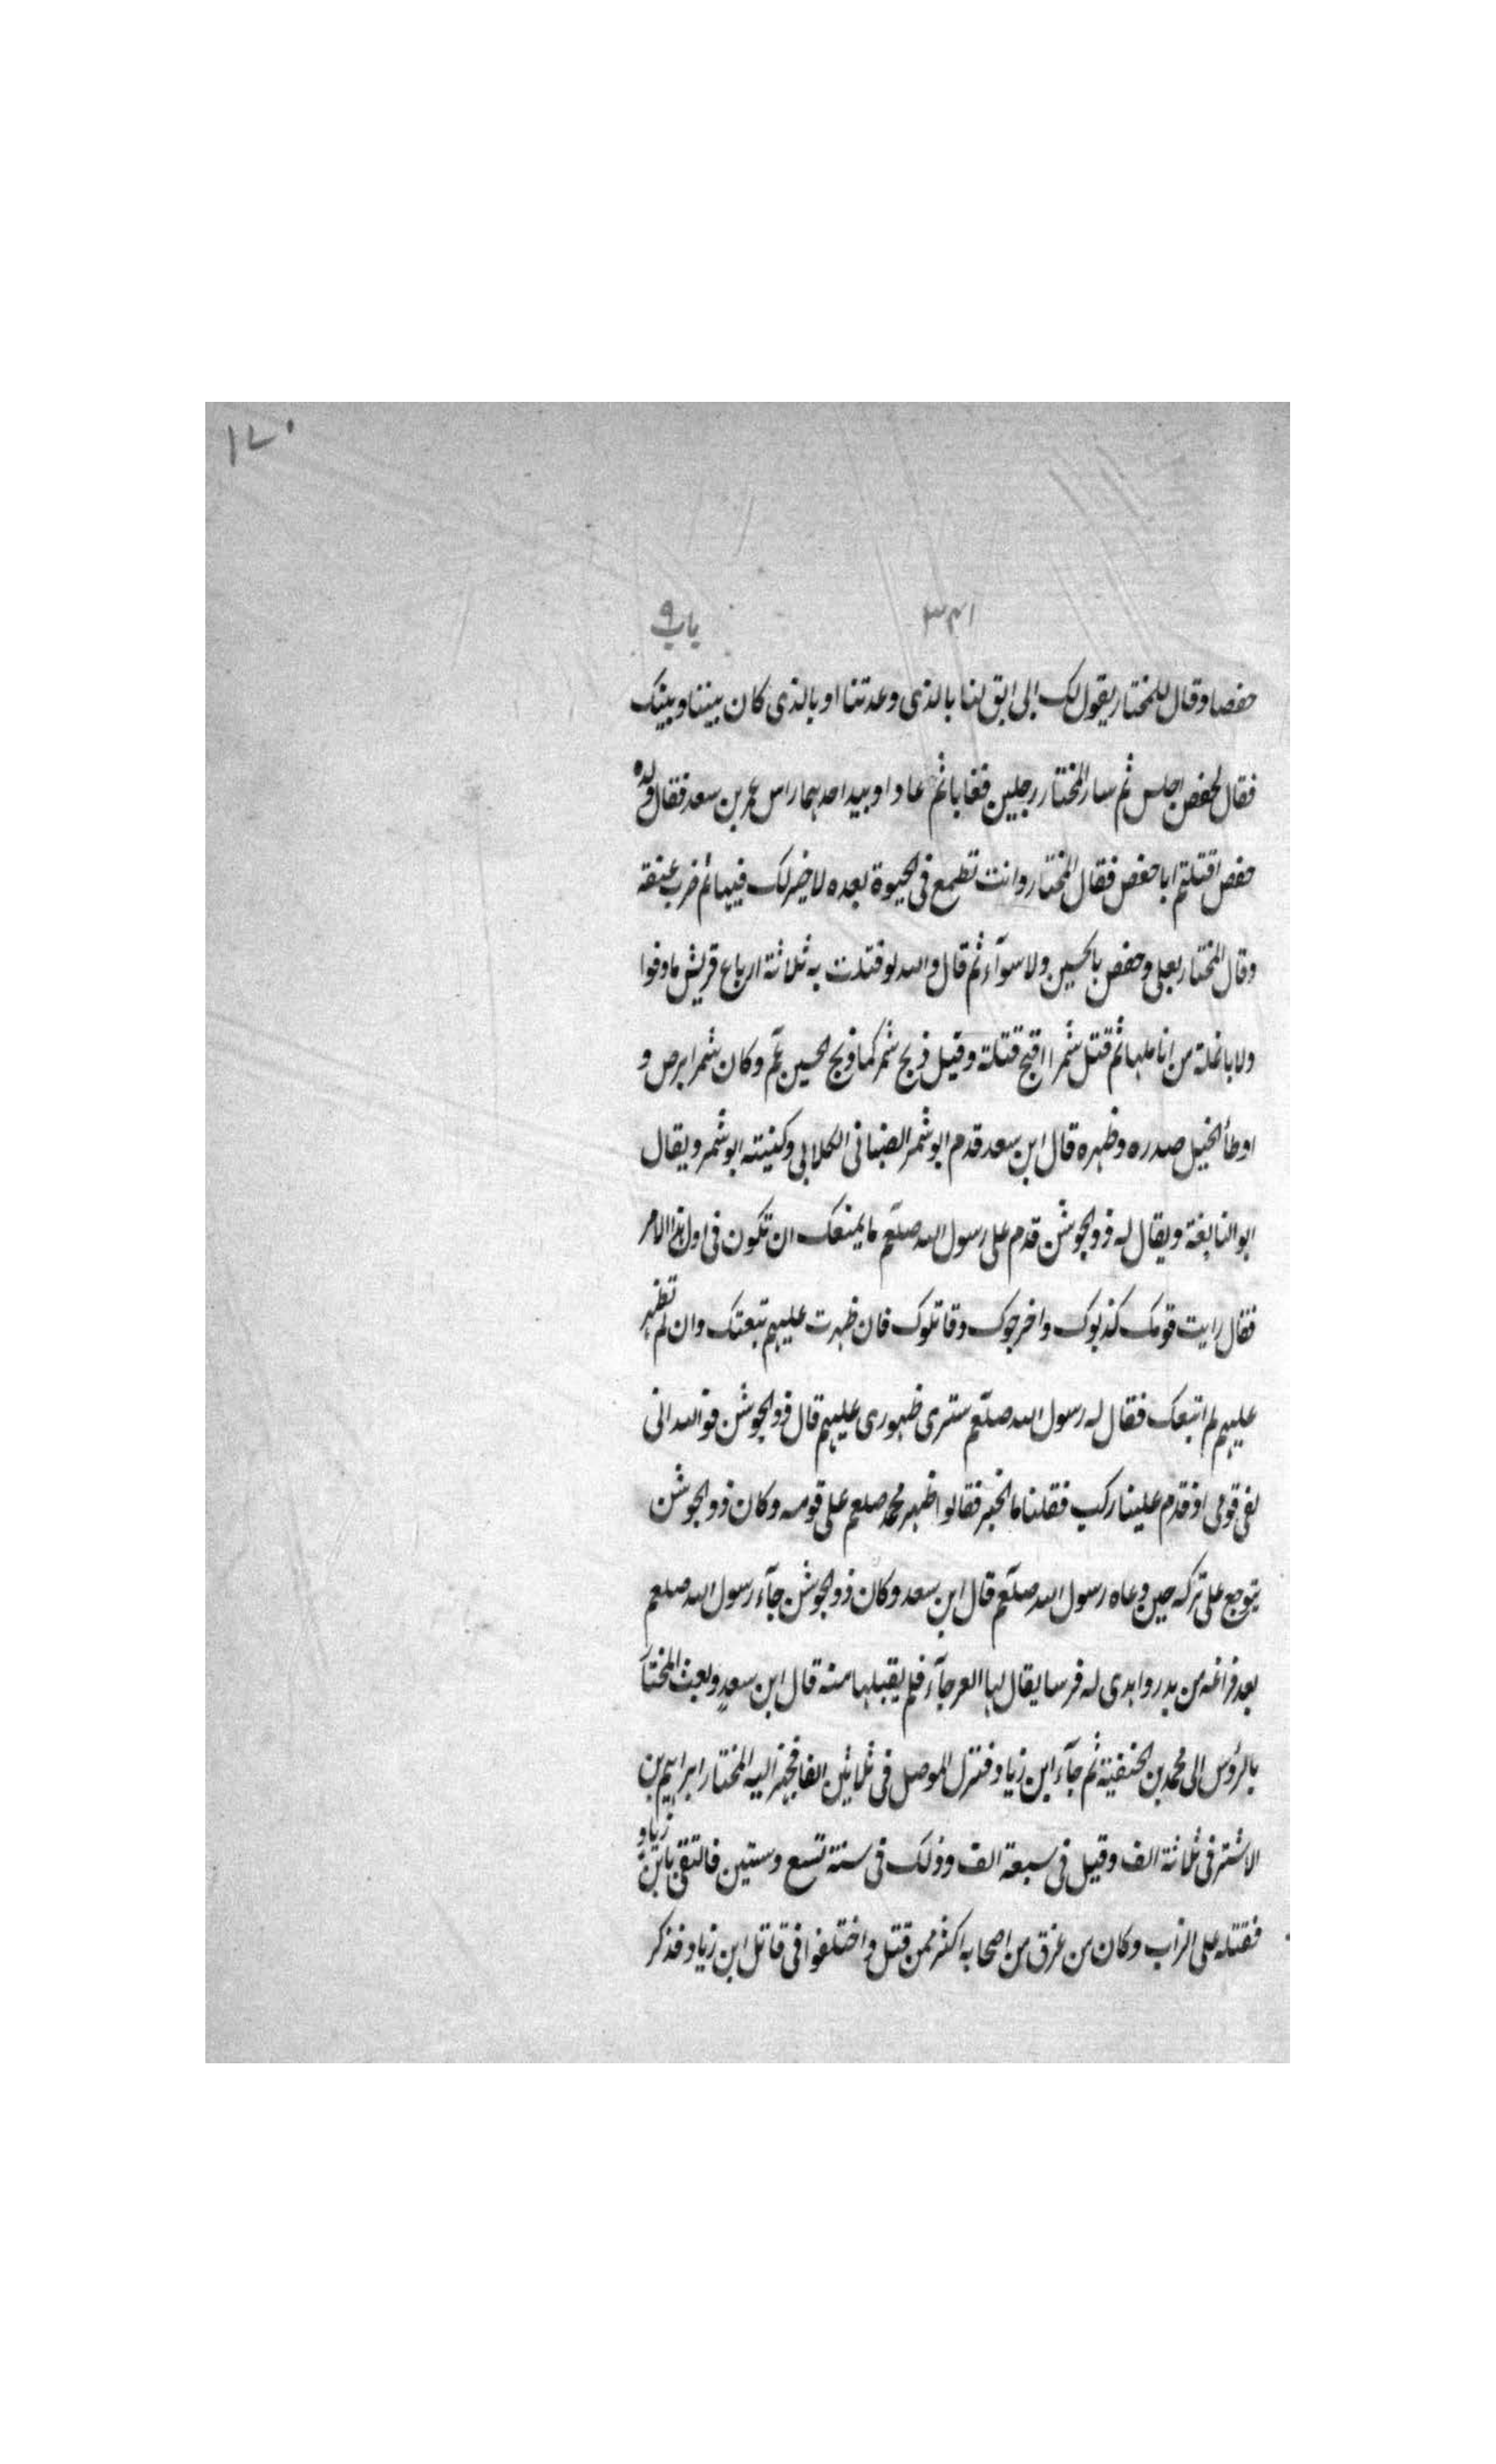 ١٧٠
٣٤١ باب ٩
حفصا وقال للمختار يقول لك ابى ابق لنا بالذى وعدتنا او بالذى كان بيننا وبينك
فقال لحفص اجلس ثم سار المختار رجلين فغابا ثم عادا وبيد احدهما راس عمر بن سعد فقال ولده
حفص اقتلتم ابا حفص فقال المختار وانت تطمع فى الحيوة بعده لا خير لك فيها ثم ضرب عنقه
وقال المختار بعلى وحفص بالحسين ولا سوآء ثم قال والله لو قتلت به ثلاثة ارباع قريش ما وفوا
ولا بانملة من انا ملها ثم قتل شمرا اقبح قتلة وقيل ذبح شمر كما ذبح الحسين عم وكان شمر ابرص و
اوطأ الخيل صدره وظهره قال ابن سعد قدم ابو شمر الضبابى الكلابى وكنيته ابو شمر ويقال
ابو النابغة ويقال له ذو الجوشن قدم على رسول الله صلعم ما يمنعك ان تكون فى اول هذا الامر
فقال رايت قومك كذبوك واخرجوك وقاتلوك فان ظهرت عليهم تبعتك وان لم تظهر
عليهم لم اتبعك فقال له رسول الله صلعم سترى ظهورى عليهم قال ذو الجوشن فو الله انى
لفى قومى اذ قدم علينا ركب فقلنا ما الخبر فقالوا ظهر محمد صلعم على قومه وكان ذو الجوشن
يتوجع على تركه حين دعاه رسول الله صلعم قال ابن سعد وكان ذو الجوشن جآء رسول الله صلعم
بعد فراغه من بدر واهدى له فرسا يقال لها العرجآء فلم يقبلها منه قال ابن سعد وبعث المختار
بالرؤس الى محمد بن الحنفية ثم جآء ابن زياد فنزل الموصل فى ثلاثين الفا فجهز اليه المختار ابراهيم بن
الاشتر فى ثلاثة الف وقيل فى سبعة الف وذلك فى سنة تسع وستين فالتقى بابن زياد
فقتله على الزاب وكان من غرق من اصحابه اكثر ممن قتل واختلفوا فى قاتل ابن زياد فذكر